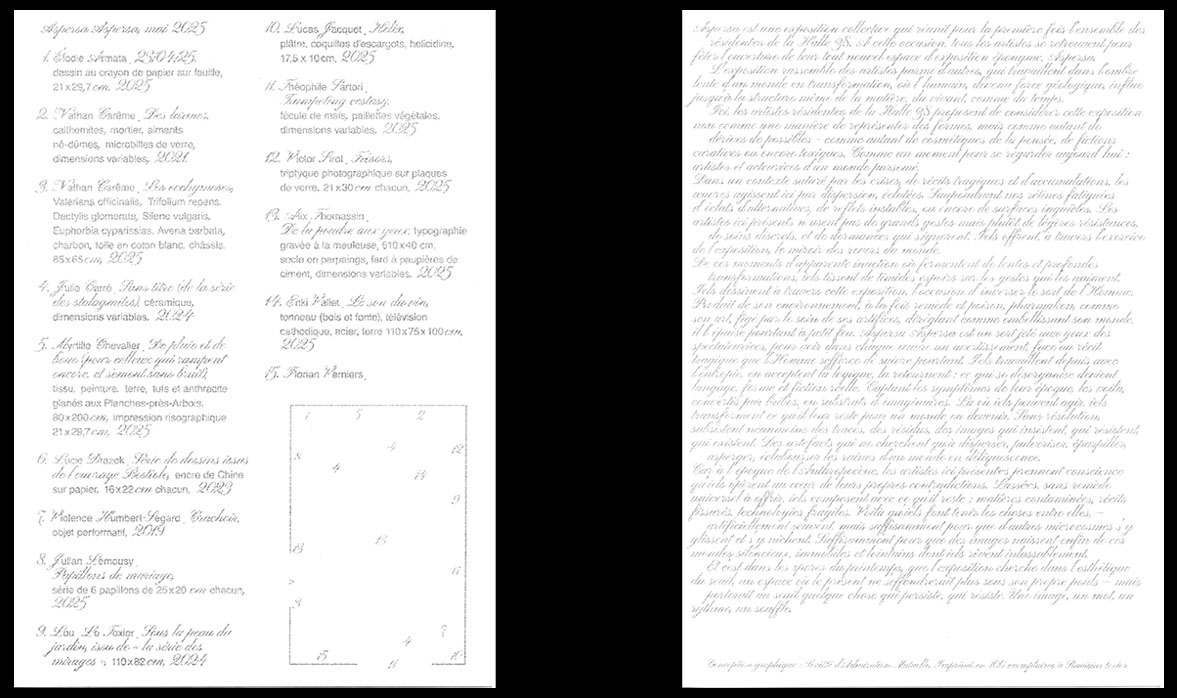 Aspersa Aspersa, mai 2025
1. Élodie Armata, 23/04/25,
dessin au crayon de papier sur feuille,
21x29,7cm. 2025
2. Nathan Carême, Des larmes,
calthemites, mortier, aimants
né-dûmes, microbilles de verre,
dimensions variables, 2021
3. Nathan Carême, Les ecchymoses,
Valeriana officinalis, Trifolium repens,
Dactylis glomerata, Silene vulgaris,
Euphorbia cyparissias, Avena barbata,
charbon, toile en coton blanc, châssis.
85x65cm, 2025
4. Julie Carré, Sans titre (de la série
des stalagmites), céramique,
dimensions variables. 2024
5. Myrtille Chevalier, De pluie et de
boue (pour celleux qui rampent
encore, et sèment sans bruit),
tissu, peinture, terre, tuls et anthracite
glanés aux Planches-près-Arbois,
80x200cm, impression risographique
21x29,7cm, 2025
6. Lucie Drazek, Série de dessins issus
de l'ouvrage Bestiole, encre de Chine
sur papier, 16x22cm chacun, 2023
7. Violence Humbert-Segard, Crachoir,
objet performatif, 2019
8. Julian Lemousy,
Papillons de mariage,
série de 6 papillons de 25x20 cm chacun,
2025
9. Lou Le Texier, Sous la peau du
jardin, issu de « la série des
mirages », 110x82cm, 2024
10. Lucas Jacquet, Hélix,
plâtre, coquilles d'escargots, helicidine,
17,5 x 10cm, 2025
11. Théophile Sartori,
Trumpeting ecstasy,
fécule de maïs, paillettes végétales,
dimensions variables, 2025
12.
triptyque photographique sur plaques
de verre, 21x30cm chacun, 2025
13. Alix Thomassin,
De la poudre aux yeux, typographie
gravée à la meuleuse, 510x40 cm,
socle en parpaings, fard à paupières de
ciment, dimensions variables. 2025
14. Enki Vallet, Le son du vin,
tonneau (bois et fonte), télévision
cathodique, acier, terre 110x75x100cm,
2025
15. Florian Verniers,
1 5 2
4 12
8 4 14
9
13 13
6
4 7
15 11 10
Aspersa est une exposition collective qui réunit pour la première fois l'ensemble des
résidentes de la Halle 98. A cette occasion, tous les artistes se retrouvent pour
fêter l'ouverture de leur tout nouvel espace d'exposition éponyme, Aspersa.
L'exposition rassemble des artistes parmi d'autres, qui travaillent dans l'ombre
lente d'un monde en transformation, où l'humain, devenu force géologique, influe
jusqu'à la structure même de la matière, du vivant, comme du temps.
Ici, les artistes résidentes de la Halle 98 proposent de considérer cette exposition
non comme une manière de représenter des formes, mais comme autant de
dérives de possibles – comme autant de cosmétiques de la pensée, de fictions
curatives ou encore toxiques. Comme un moment pour se regarder aujourd'hui :
artistes et acteurices d'un monde parsemé.
Dans un contexte saturé par les crises, de récits tragiques et d'accumulations, les
œuvres agissent ici par dispersion, éclatées. Saupoudrant nos rétines fatiguées
d'éclats d'alternatives, de reflets instables, ou encore de surfaces inquiètes. Les
artistes ici présents n'usent pas de grands gestes mais plutôt de légères résistances,
de soins discrets, et de dormances qui s'ignorent. Iels offrent à travers l'exercice
de l'exposition, le miroir des revers du monde.
De ces moments d'apparente inaction où fermentent de lentes et profondes
transformations, iels tissent de timides espoirs sur les gestes qui les animent.
Iels dessinent à travers cette exposition, l'occasion d'inverser le sort de l'Homme.
Produit de son environnement, à la fois remède et poison, pharmakon, comme
son art, figé par le soin de ses artifices, déréglant comme embellissant son monde,
il l'épuise pourtant à petit feu. Aspersa Aspersa est un sort jeté aux yeux des
spectateurices, pour voir dans chaque œuvre un avertissement, face au récit
tragique que l'Homme s'efforce de suivre pourtant. Iels travaillent depuis avec
l'entropie, en acceptent la logique, la retournent : ce qui se désorganise devient
langage, forme et fiction réelle. Captant les symptômes de leur époque, les voilà,
convertis par bribes, en substrats d'imaginaires. Là où iels peuvent agir, iels
transforment ce qu'il leur reste pour un monde en devenir. Sans résolution,
subsistent néanmoins des traces, des résidus, des images qui insistent, qui résistent,
qui existent. Des artefacts qui ne cherchent qu'à disperser, pulvériser, éparpiller,
asperger, éclabousser les ruines d'un monde en déliquescence.
Car à l'époque de l'Anthropocène, les artistes ici présentes prennent conscience
qu'iels opèrent au cœur de leurs propres contradictions. Lassées, sans remède
universel à offrir, iels composent avec ce qu'il reste : matières contaminées, récits
fissurés, technologies fragiles. Voilà qu'iels font tenir les choses entre elles, –
artificiellement souvent, mais suffisamment pour que d'autres microcosmes s'y
glissent et s'y nichent. Suffisamment pour que des images naissent enfin de ces
mondes silencieux, immobiles et lointains dont iels rêvent inlassablement.
Et c'est dans les spores du printemps, que l'exposition cherche dans l'esthétique
du seuil, un espace où le présent ne s'effondrerait plus sous son propre poids – mais
porterait au seuil quelque chose qui persiste, qui résiste. Une image, un mot, un
rythme, un souffle.
Conception graphique : Société d'Admiration Mutuelle, Imprimé en